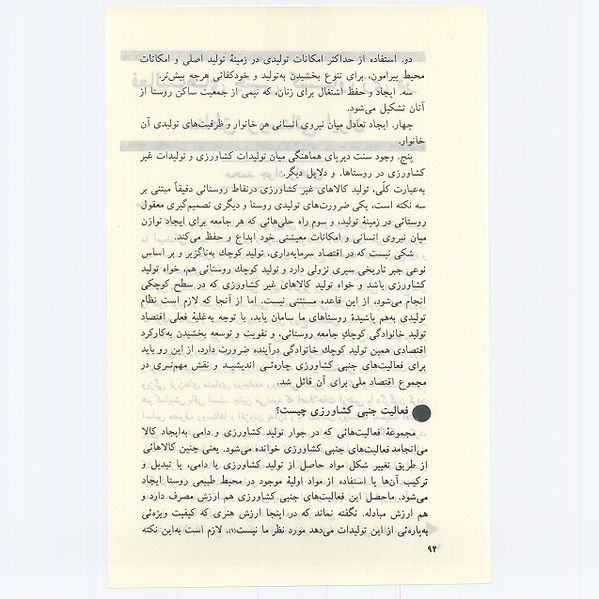 دو. استفاده از حداکثر امکانات تولیدی در زمینهٔ تولید اصلی و امکانات
محیط پیرامون، برای تنوع بخشیدن به‌تولید و خودکفائی هرچه بیش‌تر.
سه. ایجاد و حفظ اشتغال برای زنان، که نیمی از جمعیت ساکن روستا از
آنان تشکیل می‌شود.
چهار. ایجاد تعادل میان نیروی انسانی هر خانوار و ظرفیت‌های تولیدی آن
خانوار.
پنج. وجود سنت دیرپای هماهنگی میان تولیدات کشاورزی و تولیدات غیر
کشاورزی در روستاها. و دلایل دیگر.
به‌عبارت کلّی، تولید کالاهای غیر کشاورزی درنقاط روستائی دقیقاً مبتنی بر
سه نکته است، یکی ضرورت‌های تولیدی روستا و دیگری تصمیم‌گیری معقول
روستائی در زمینهٔ تولید، و سوم راه حلی‌هائی که هر جامعه برای ایجاد توازن
میان نیروی انسانی و امکانات معیشتی خود ابداع و حفظ می‌کند.
شکی نیست که در اقتصاد سرمایه‌داری، تولید کوچك به‌ناگزیر و بر اساس
نوعی جبر تاریخی سیری نزولی دارد و تولید کوچك روستائی هم، خواه تولید
کشاورزی باشد و خواه تولید کالاهای غیر کشاورزی که در سطح کوچکی
انجام می‌شود، از این قاعده مستثنی نیست. اما از آنجا که لازم است نظام
تولیدی به‌هم پاشیدهٔ روستاهای ما سامان یابد، با توجه به‌غلبهٔ فعلی اقتصاد
تولید خانوادگی کوچكِ جامعه روستائی، و تقویت و توسعه بخشیدن به‌کارکرد
اقتصادی همین تولید کوچك خانوادگی درآینده ضرورت دارد، از این رو باید
برای فعالیت‌های جنبی کشاورزی چاره‌ئی اندیشید و نقش مهم‌تری در
مجموع اقتصاد ملی برای آن قائل شد.
فعالیت جنبی کشاورزی چیست؟
مجموعهٔ فعالیت‌هائی که در جوار تولید کشاورزی و دامی به‌ایجاد کالا
می‌انجامد فعالیت‌های جنبی کشاورزی خوانده می‌شود. یعنی چنین کالاهائی
از طریق تغییر شکل مواد حاصل از تولید کشاورزی یا دامی، یا تبدیل و
ترکیب آن‌ها یا استفاده از مواد اولیهٔ موجود در محیط طبیعی روستا ایجاد
می‌شود. ماحصل این فعالیت‌های جنبی کشاورزی هم ارزش مصرف دارد و
هم ارزش مبادله. نگفته نماند که در اینجا ارزش هنری که کیفیت ویژه‌ئی
به‌پاره‌ئی از این تولیدات می‌دهد مورد نظر ما نیست(۱). لازم است به‌این نکته
۹۲